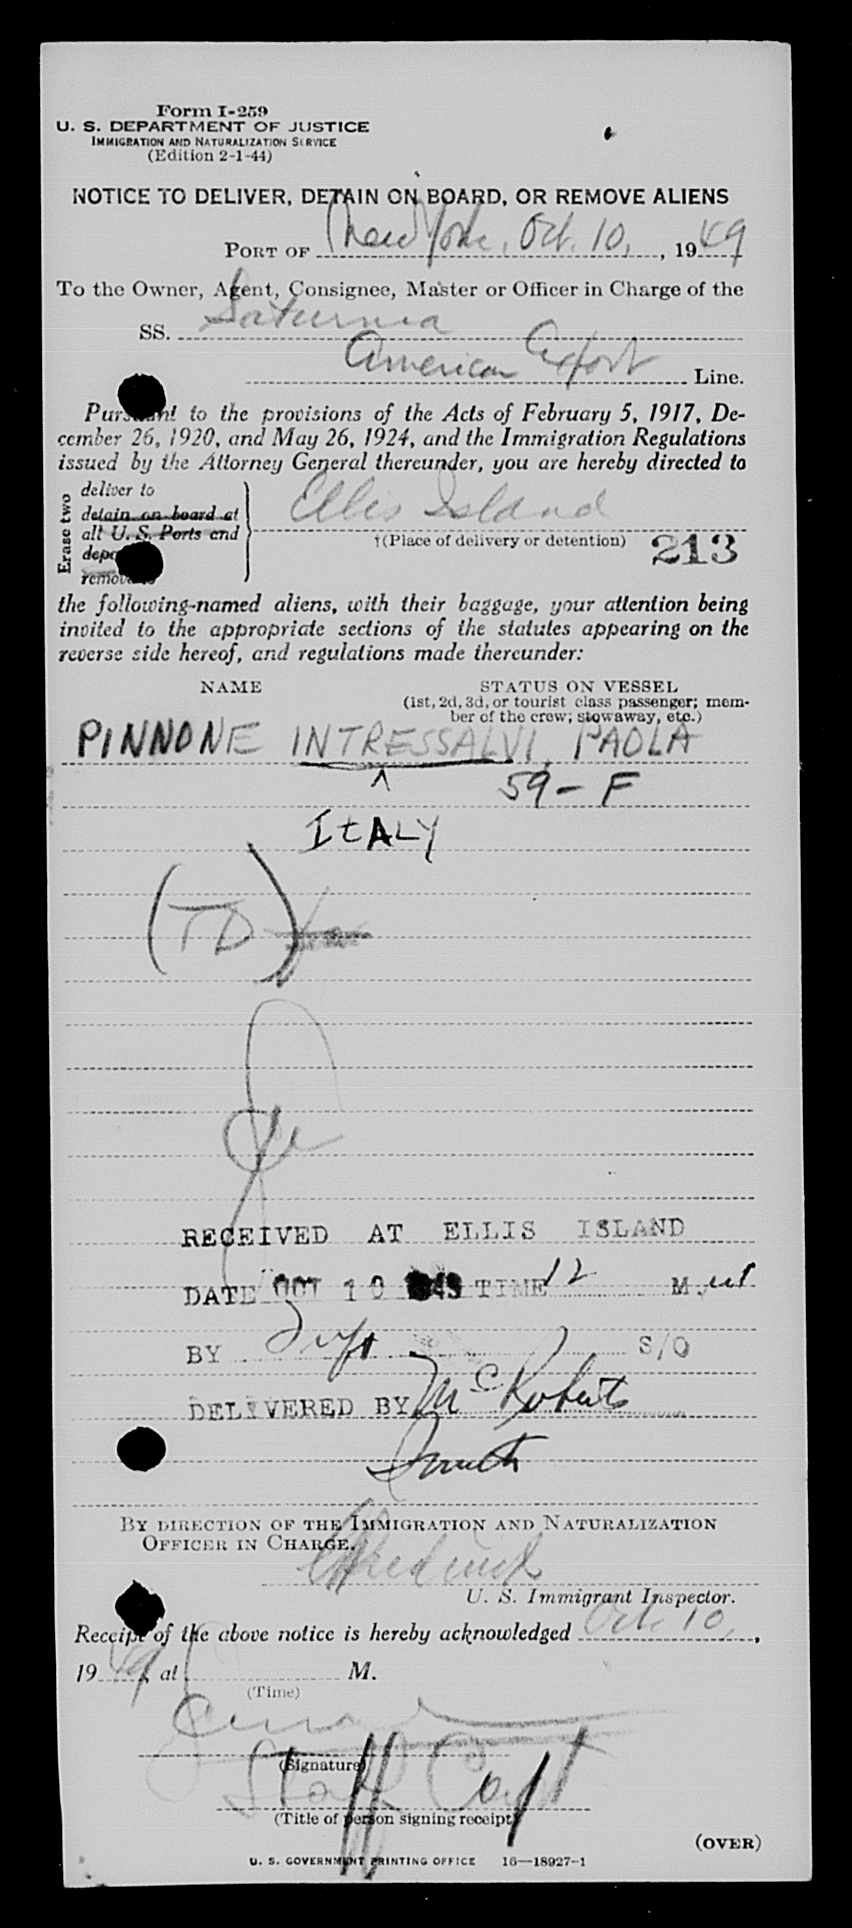 Form I-259
U. S. DEPARTMENT OF JUSTICE
IMMIGRATION AND NATURALIZATION SERVICE
(Edition 2-1-44)
NOTICE TO DELIVER, DETAIN ON BOARD, OR REMOVE ALIENS
PORT OF New York, Oct. 10, , 1949
To the Owner, Agent, Consignee, Master or Officer in Charge of the
SS. Saturnia
American Export Line.
Pursuant to the provisions of the Acts of February 5, 1917, De-
cember 26, 1920, and May 26, 1924, and the Immigration Regulations
issued by the Attorney General thereunder, you are hereby directed to
Erase two
deliver to
detain on board at
all U. S. Ports and
remove
Ellis Island
†(Place of delivery or detention)
213
the following-named aliens, with their baggage, your attention being
invited to the appropriate sections of the statutes appearing on the
reverse side hereof, and regulations made thereunder:
NAME
STATUS ON VESSEL
(1st, 2d, 3d, or tourist class passenger; mem-
ber of the crew; stowaway, etc.)
PINNONE INTRESSALVI, PAOLA
59 - F
ITALY
(TD)
RECEIVED AT ELLIS ISLAND
DATE OCT 10 1949 TIME 12 M
BY S/O
DELIVERED BY McRoberts
Smith
BY DIRECTION OF THE IMMIGRATION AND NATURALIZATION
OFFICER IN CHARGE.
U. S. Immigrant Inspector.
Receipt of the above notice is hereby acknowledged Oct. 10,
1949, at M.
(Time)
(Signature)
Staff Capt
(Title of person signing receipt)
(OVER)
U. S. GOVERNMENT PRINTING OFFICE 16—18927-1